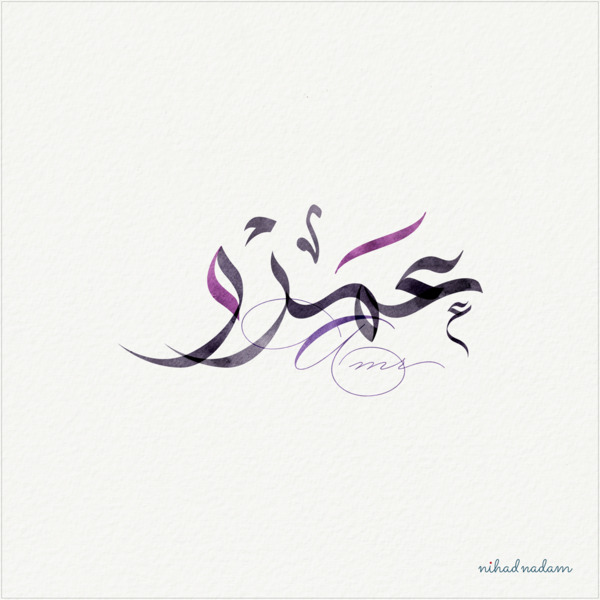 عَمرو
Amr
nihad nadam